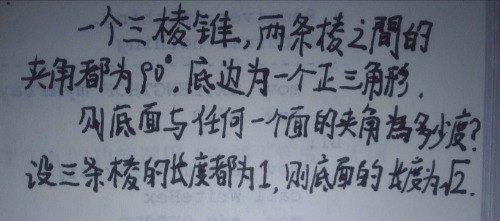 一个三棱锥，两条棱之間的
夹角都为90°．底边为一个正三角形．
则底面与任何一个面的夹角為多少度？
设三条棱的长度都为1，则底面的长度为√2．